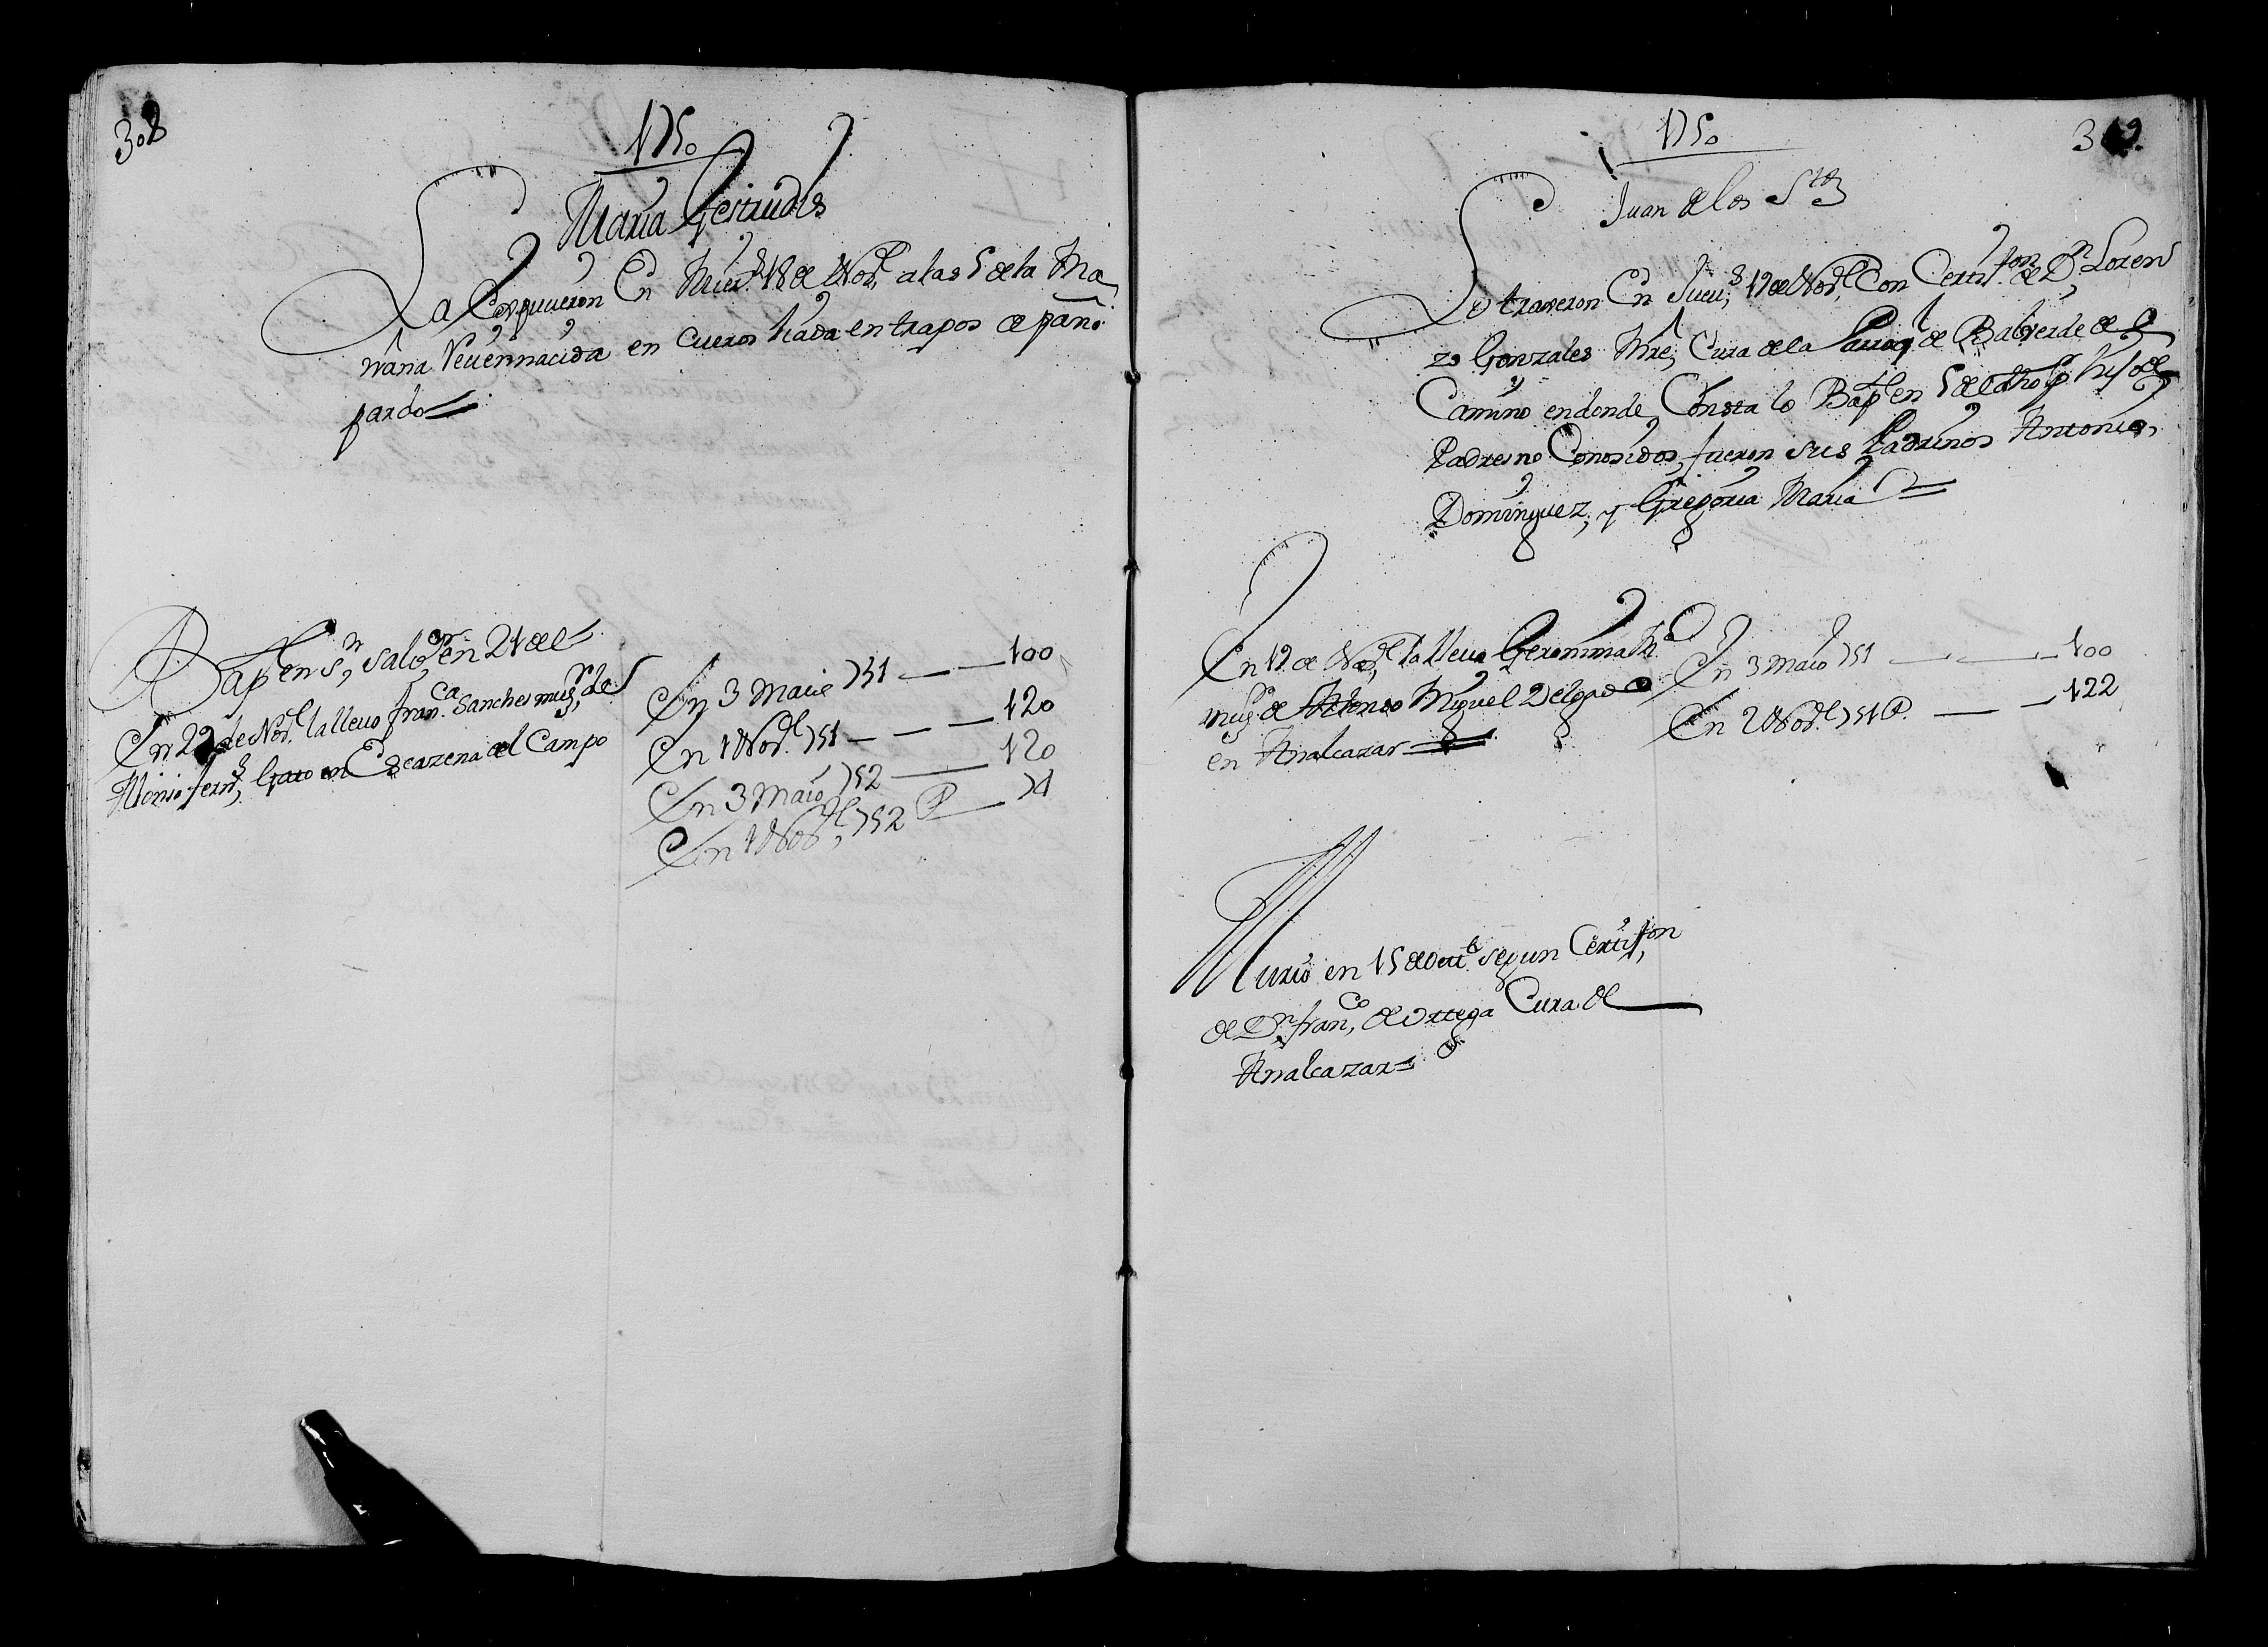 308
1750
Maria Gertrudis
La Espusieron En Mier.s 18 de Nov.e a las 5 de la Ma
ñana Reuennacida en cueros liada en trapos de paño
pardo
Bap. en S.n Salv.or en 21 del
En 22 de Nov.e la lleuo fran.ca Sanches mug.r de
Alonso fern.s Gato en Escazena del Campo
En 3 Maio 751 100
En 1 Nov.e 751 120
En 3 Maio 752 120
En 1 Nov.e 752 P 71
1750
309.
Juan de los S.tos
Lo traxeron En Juev.s 19 de Nov.e Con Certif.on de D.n Loren
zo Gonzales Cura de la Parroq de Balverde de
Camino en donde Consta lo Bap. en 5 de dho hijo de
Padres no Conosidos, fueron sus Padrinos Antonio
Dominguez, y Gregoria Maria
En 19 de Nov.e la lleua Geronima R.a
mug.r de Alonso Miguel Delgado
en Analcazar
En 3 Maio 751 100
En 2 Nov.e 751 P. 122
Murio en 15 de Oct.e segun Certif.on
de D.n fran.co de Ortega Cura de
Analcazar